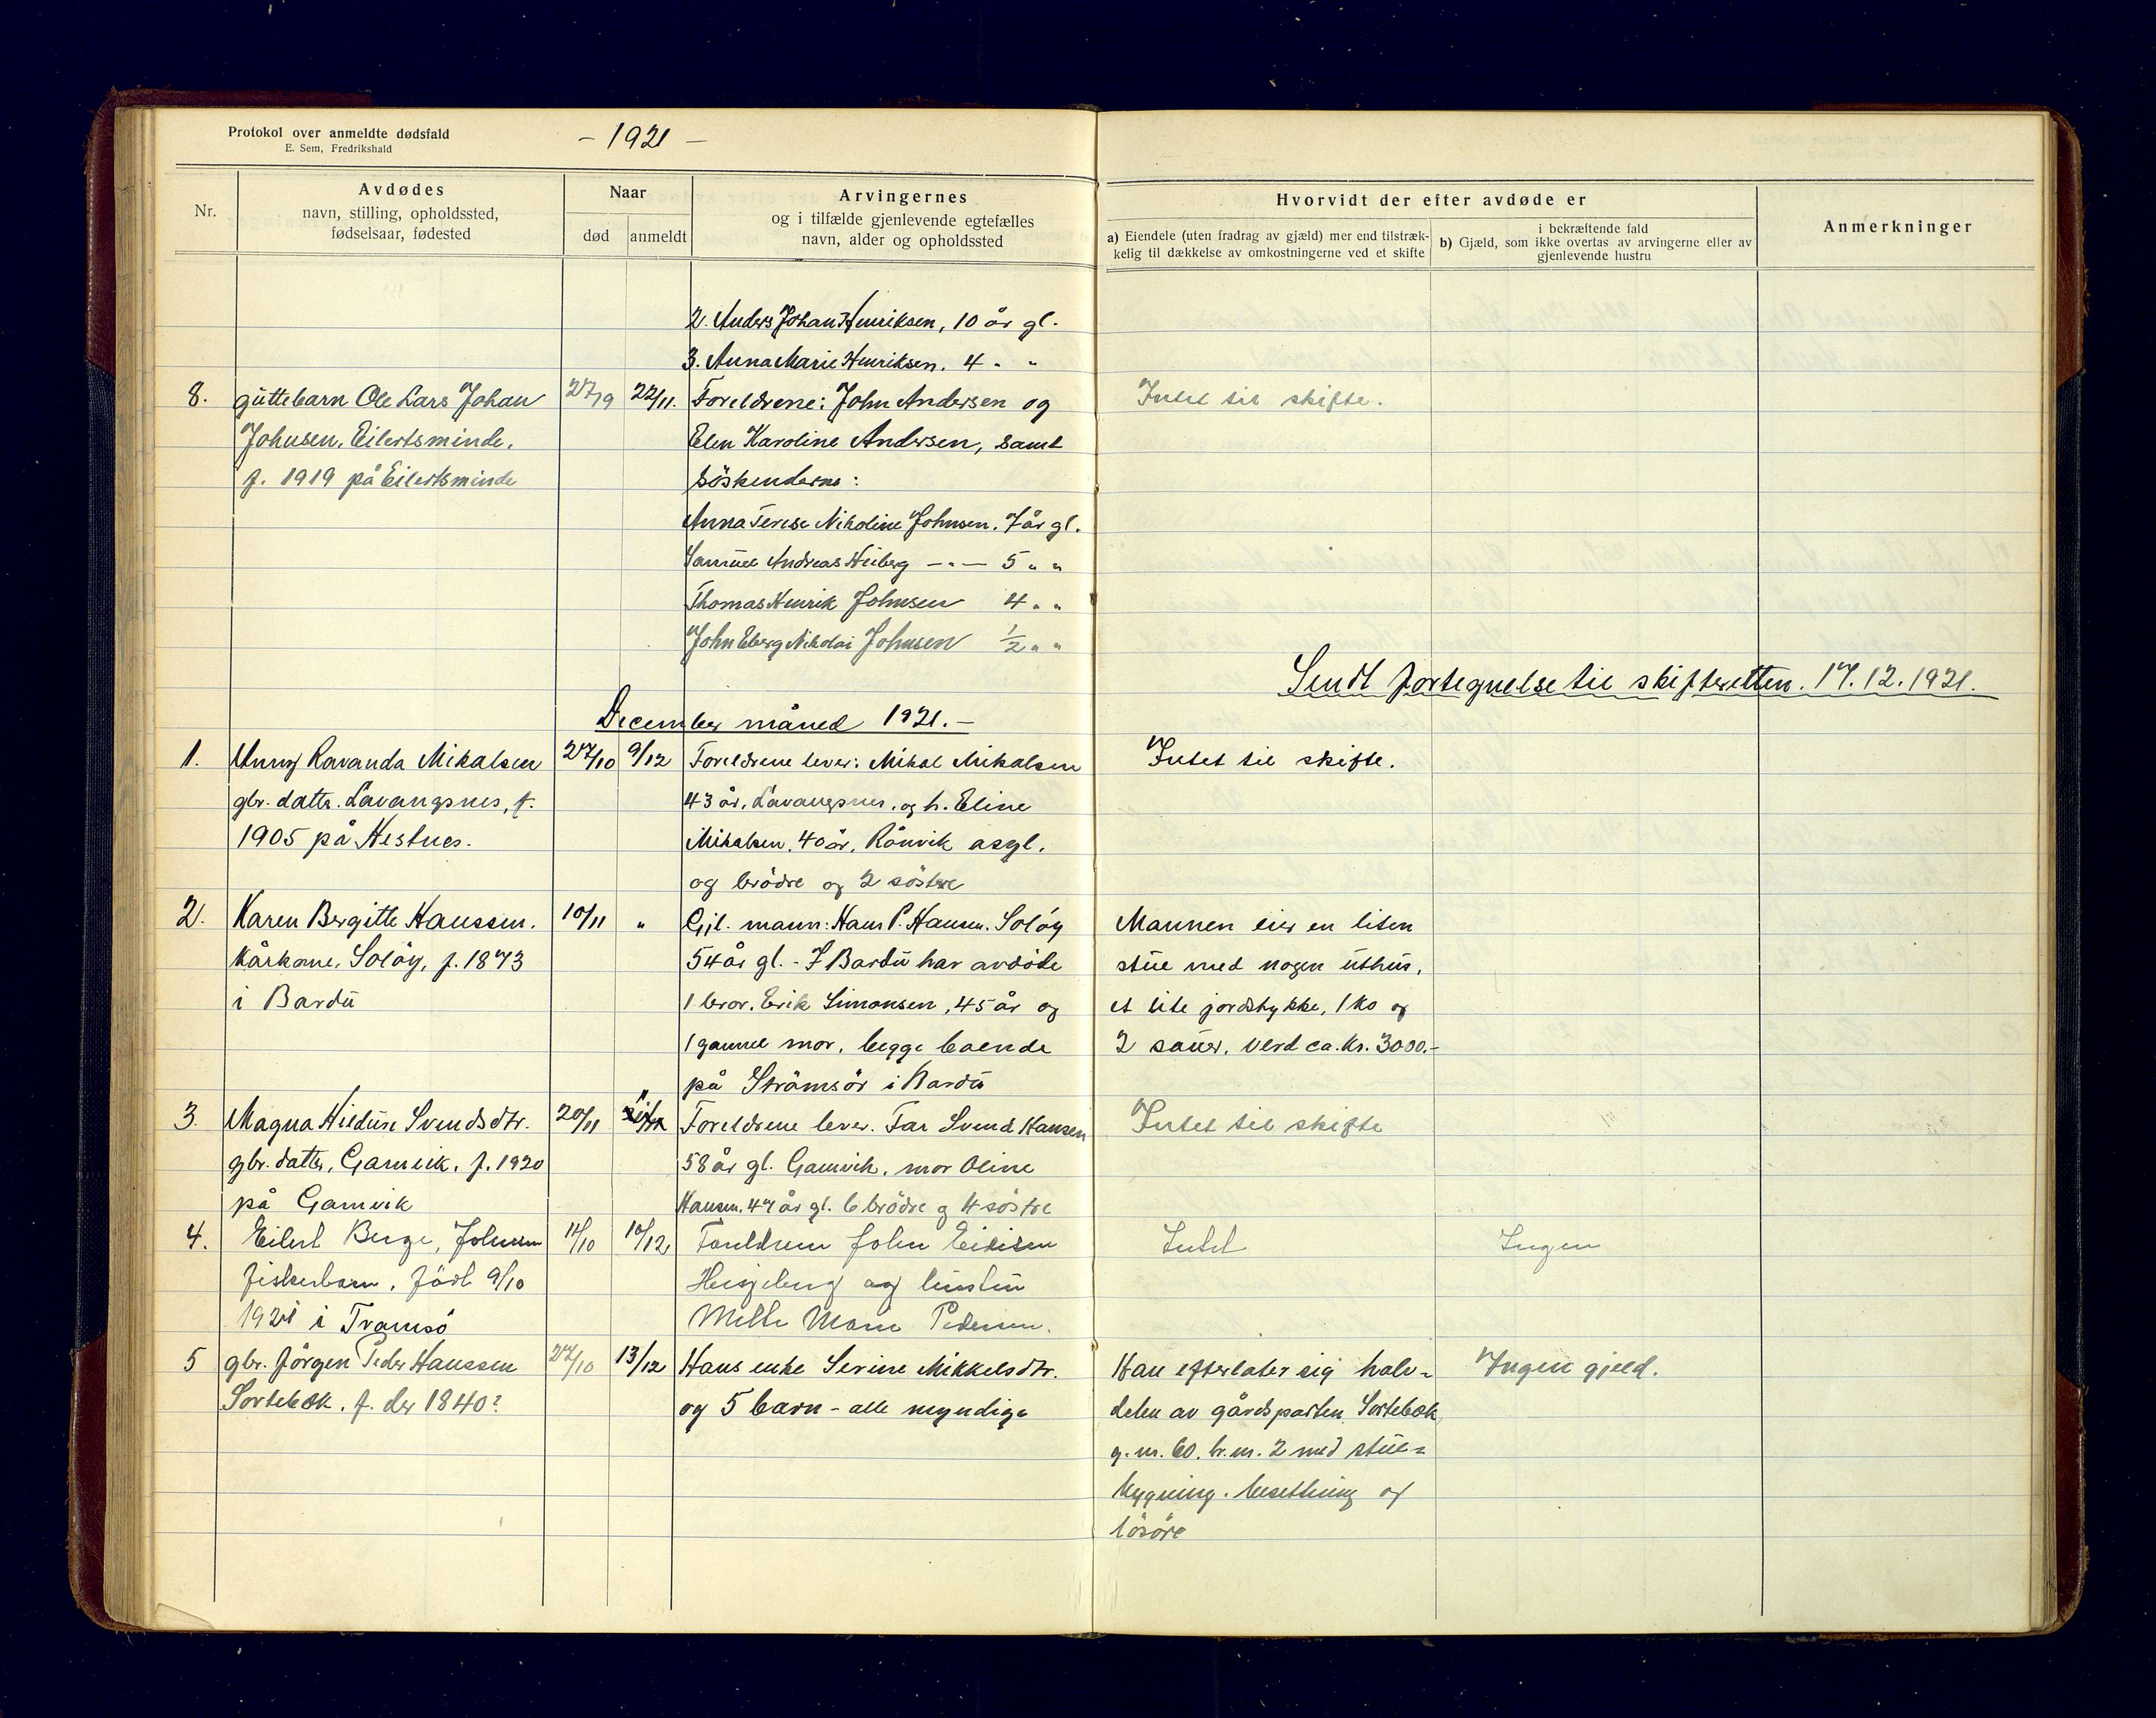 Protokol over anmeldte dødsfald
E. Sem, Fredrikshald
- 1921 -
Nr.
Avdødes
navn, stilling, opholdssted,
fødselsaar, fødested
Naar
død
anmeldt
Arvingernes
og i tilfælde gjenlevende egtefælles
navn, alder og opholdssted
Hvorvidt der efter avdøde er
a) Eiendele (uten fradrag av gjæld) mer end tilstræk-
kelig til dækkelse av omkostningerne ved et skifte
i bekræftende fald
b) Gjæld, som ikke overtas av arvingerne eller av
gjenlevende hustru
Anmerkninger
2. Anders Johan Henriksen, 10 år gl.
3. Anna Marie Henriksen. 4 " "
8. guttebarn Ole Lars Johan 27/9 22/11. Foreldrene: John Andersen og Intet til skifte.
Johnsen, Eilertsminde. Elen Karoline Andersen, samt
f. 1919 på Eilertsminde söskenderne:
Anna Terese Nikoline Johnsen. 7 år gl.
Samuel Andreas Heiberg -"- 5 " "
Thomas Henrik Johnsen 4 " "
John Eberg Nikolai Johnsen 1/2 " "
Sendt fortegnelse til skifteretten. 17.12.1921.
December måned 1921.-
1. Anny Ravanda Mikalsen 27/10 9/12 Foreldrene lever: Mikal Mikalsen Intet til skifte.
gbr. datter. Lavangsnes, f. 43 år, Lavangsnes, og h. Eline
1905 på Hestnes. Mikalsen, 40 år, Rånvik asyl.
og brödre og 2 söstre
2. Karen Bergitte Hanssen. 10/11 " Gjl. mann: Hans P. Hansen. Solöy Mannen eier en liten
Kårkone, Solöy, f. 1873 54 år gl. - I Bardu har avdöde stue med nogen uthus,
i Bardu 1 bror, Erik Simonsen, 45 år og et lite jordstykke, 1 ko og
1 gammel mor, begge boende 2 sauer. Verd ca. kr. 3000.-
på Strömsör i Bardu
3. Magna Hildur Svendsdtr. 20/11 " Foreldrene lever. Far Svend Hansen Intet til skifte
gbr. datter, Gamvik. f. 1920 58 år gl. Gamvik, mor Oline
på Gamvik Hansen. 47 år gl. 6 brödre og 4 söstre
4. Eilert Berge, Johnsen 11/10 10/12 Foreldrene John Intet Ingen
fiskerbarn. födt 9/10 og hustru
1921 i Tromsö Marie Pedersen.
5 gbr. Jörgen Peder Hanssen 27/10 13/12 Hans enke Serine Mikkelsdtr. Han efterlater sig halv- Ingen gjeld.
Sortebek. f. der 1840? og 5 barn - alle myndige delen av gårdsparten Sortebek
g.nr. 60. br.nr. 2 med stue-
bygning. besetning og
lösöre